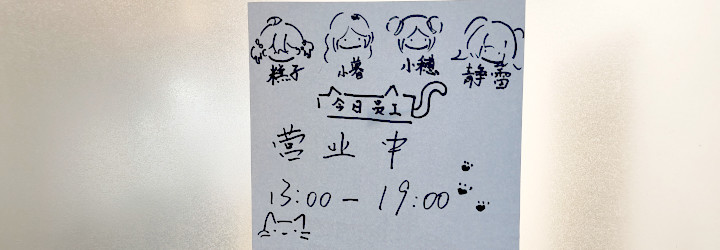 糕子 小暮 小穗 静蕾
今日员工
营业中
13:00-19:00